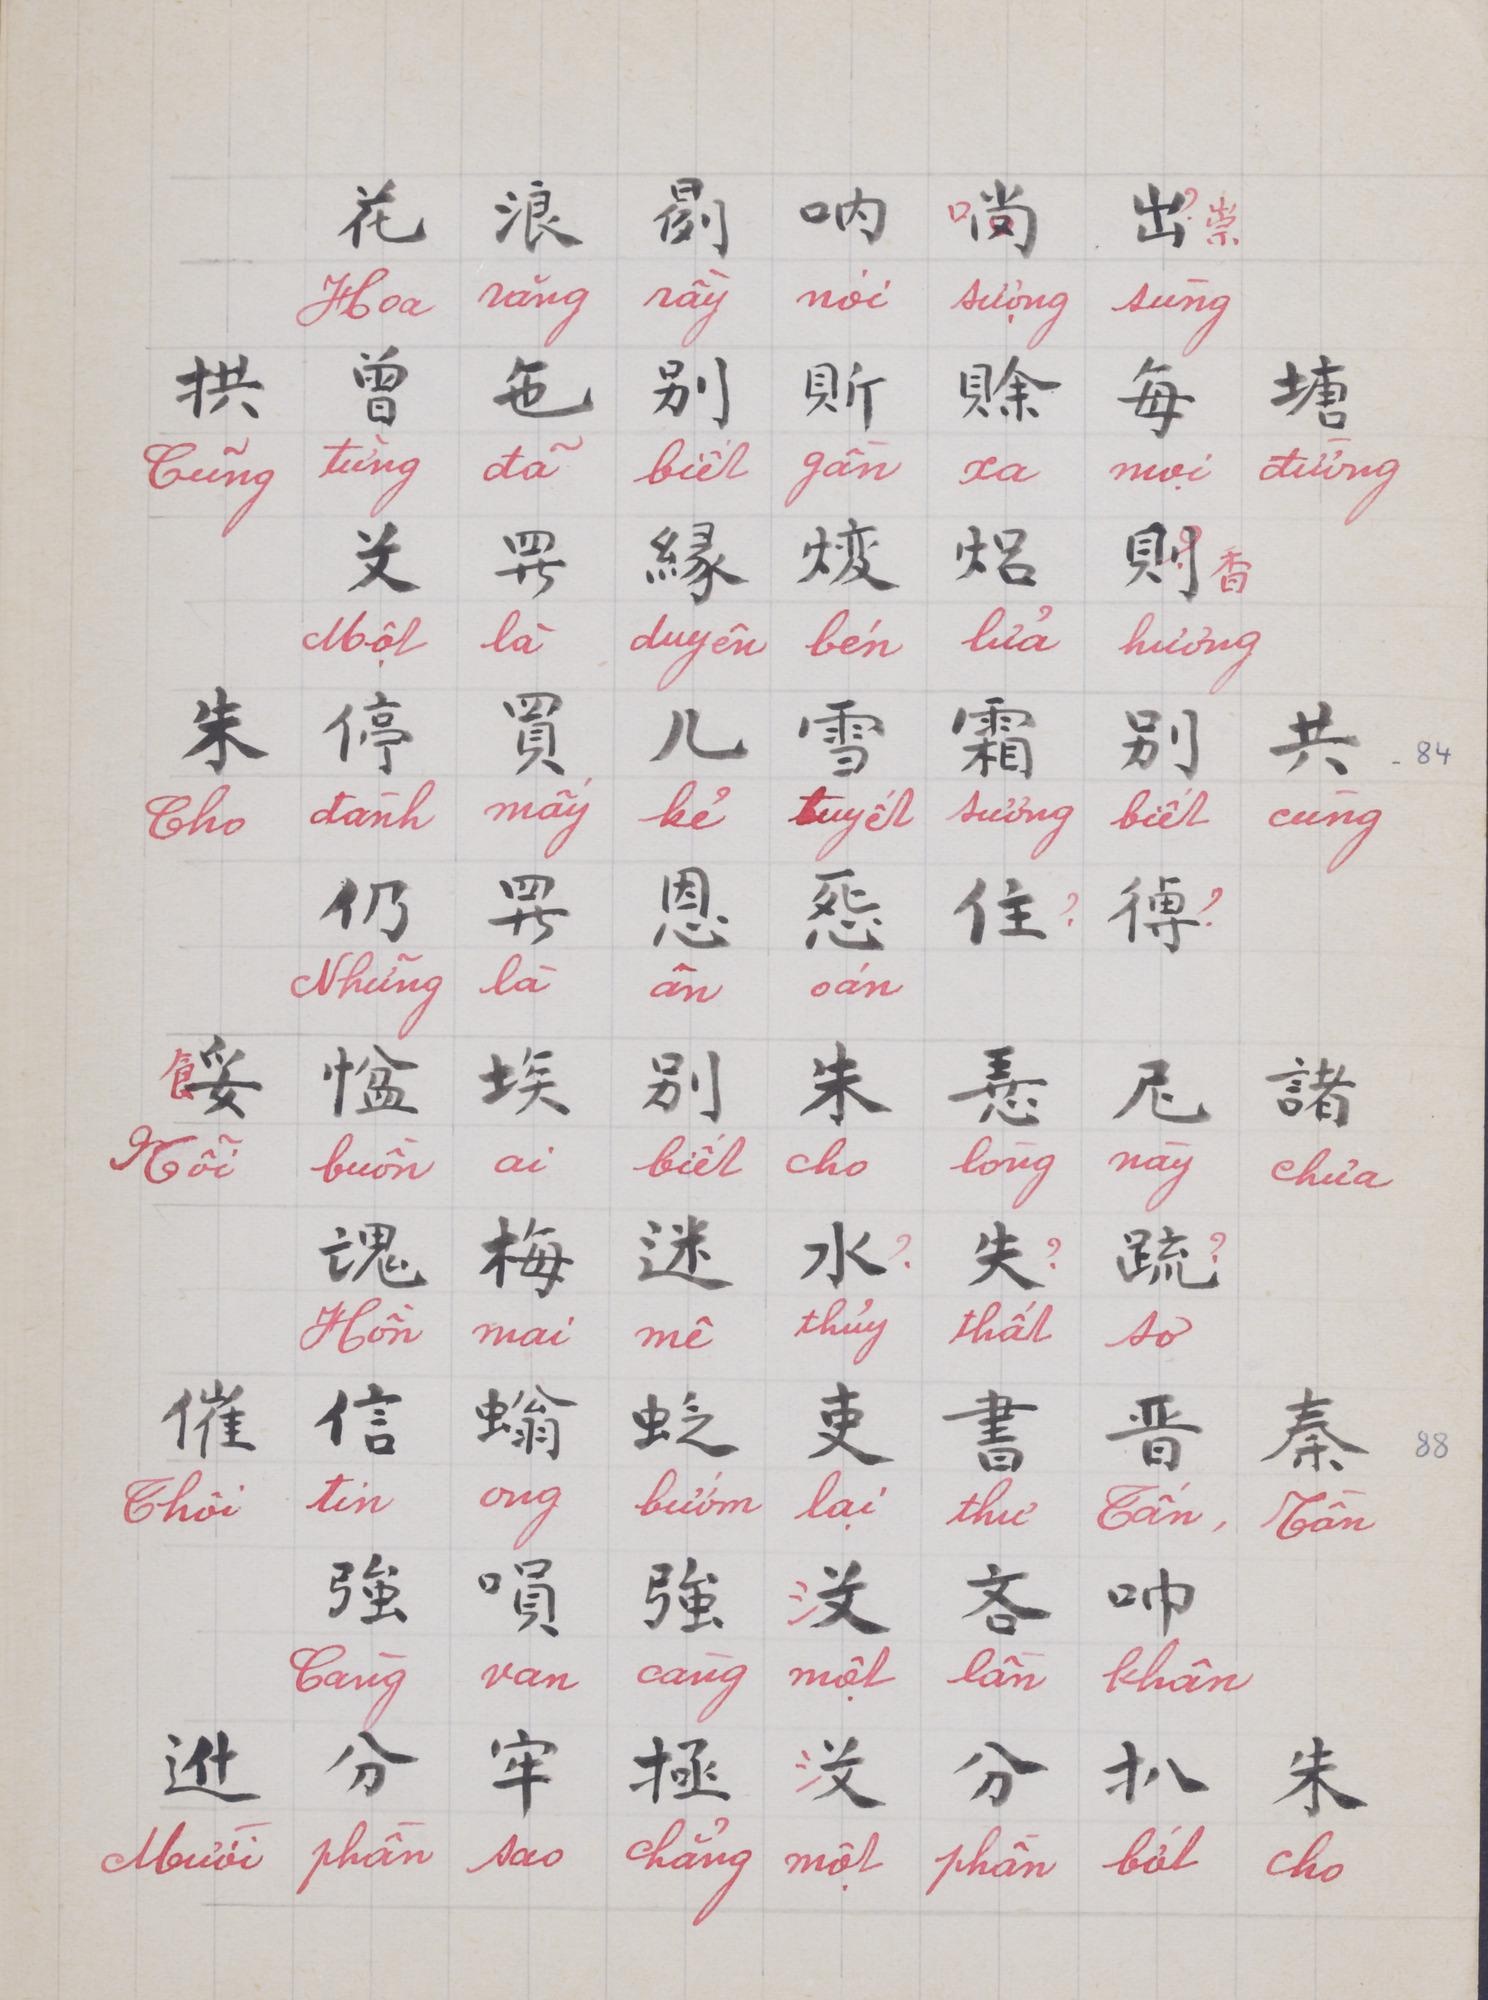 花 浪 𠜷 吶 啲 出 ? 崇
Hoa rằng rầy nói sượng sùng
拱 曾 㐌 别 𧵆 賒 每 塘
Cũng từng đã biết gần xa mọi đường
𠬠 羅 緣 㷑 焒 則 ? 香
Một là duyên bén lửa hương
朱 停 買 儿 雪 霜 别 共 - 84
Cho đành mấy kẻ tuyết sương biết cùng
仍 羅 恩 怨 住 ? 得 ?
Những là ân oán
餒 𢞂 埃 别 朱 𢚸 尼 諸
Nỗi buồn ai biết cho lòng này chưa
魂 梅 迷 水 ? 失 ? 疏 ?
Hồn mai mê thủy thất sơ
催 信 螉 𧊉 吏 書 晋 秦 88
Thôi tin ong bướm lại thư Tấn, Tần
強 㖳 強 𣳔 吝 呥
Càng van càng một lần khân
𨑮 分 牢 拯 𣳔 分 扒 朱
Mười phần sao chẳng một phần bớt cho